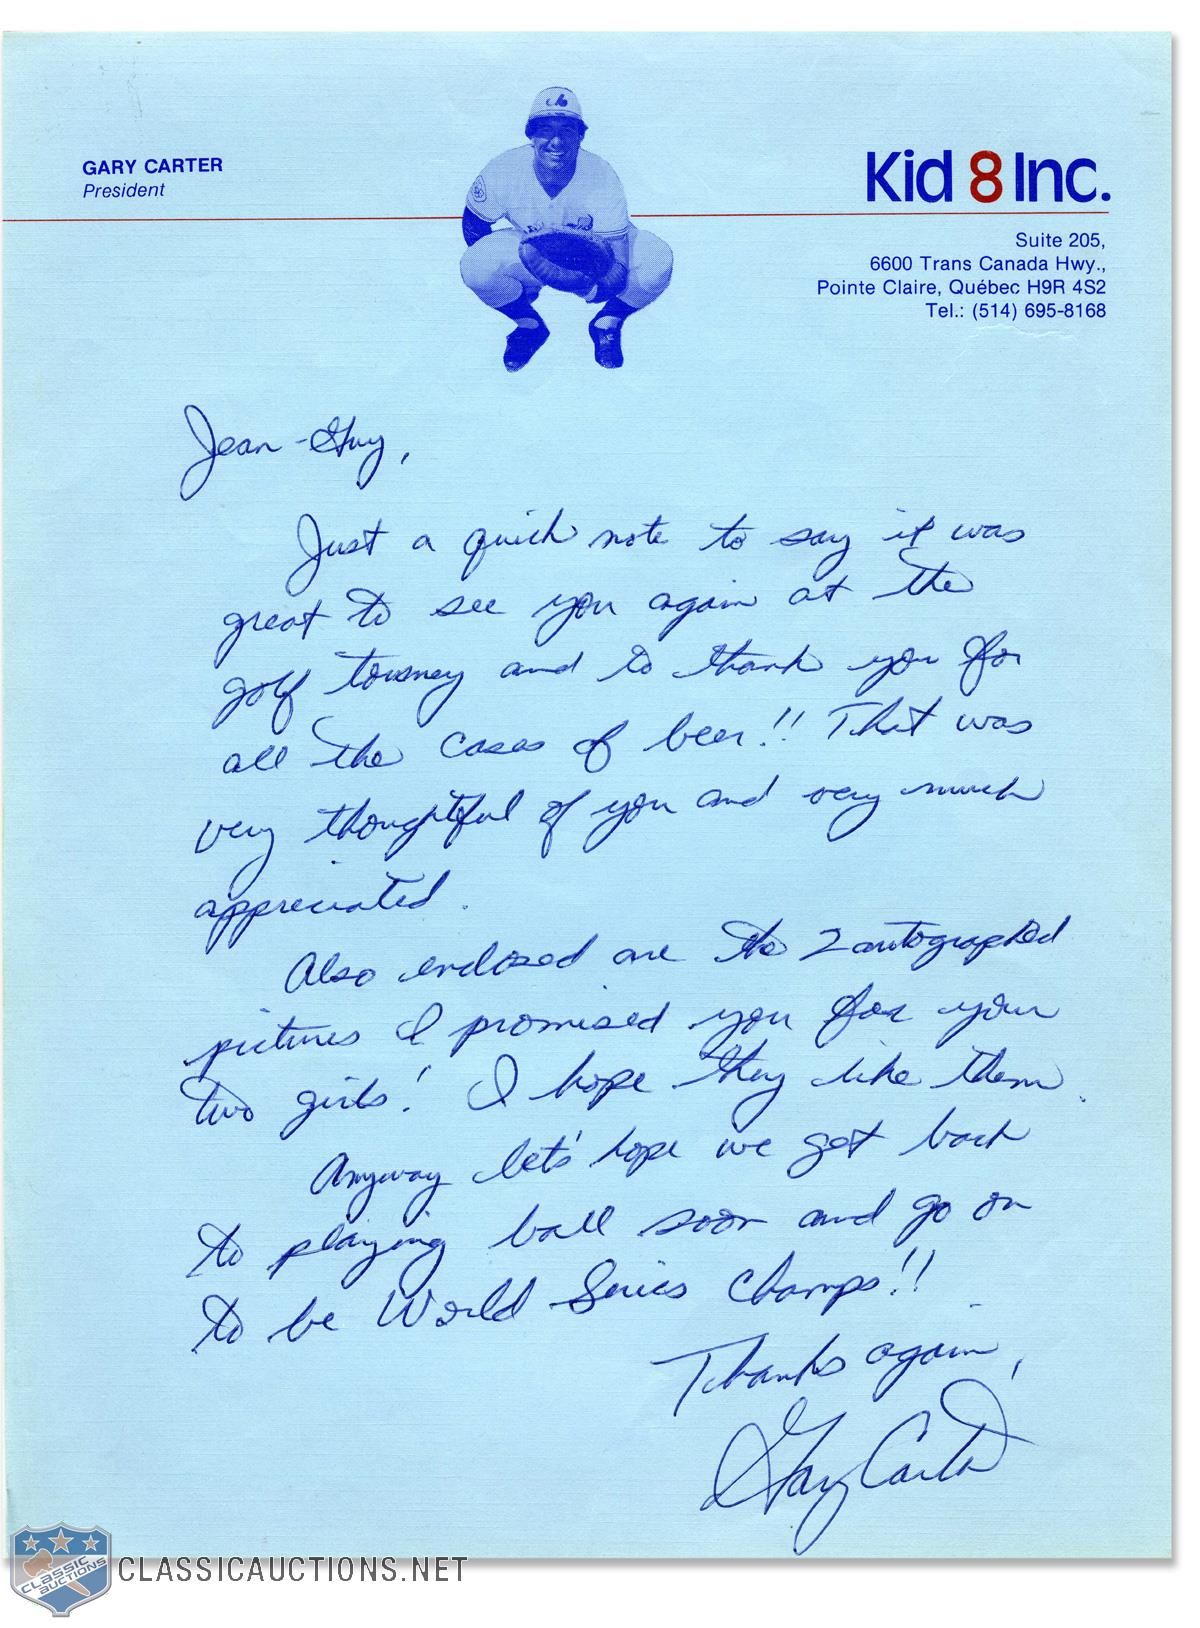 GARY CARTER
President
Kid 8 Inc.
Suite 205,
6600 Trans Canada Hwy.,
Pointe Claire, Québec H9R 4S2
Tel.: (514) 695-8168
Jean-Guy,
Just a quick note to say it was
great to see you again at the
golf tourney and to thank you for
all the cases of beer!! That was
very thoughtful of you and very much
appreciated.
Also enclosed are the 2 autographed
pictures I promised you for your
two girls! I hope they like them.
Anyway let's hope we get back
to playing ball soon and go on
to be World Series Champs!!
Thanks again,
Gary Carter
CLASSIC
AUCTIONS
CLASSICAUCTIONS.NET